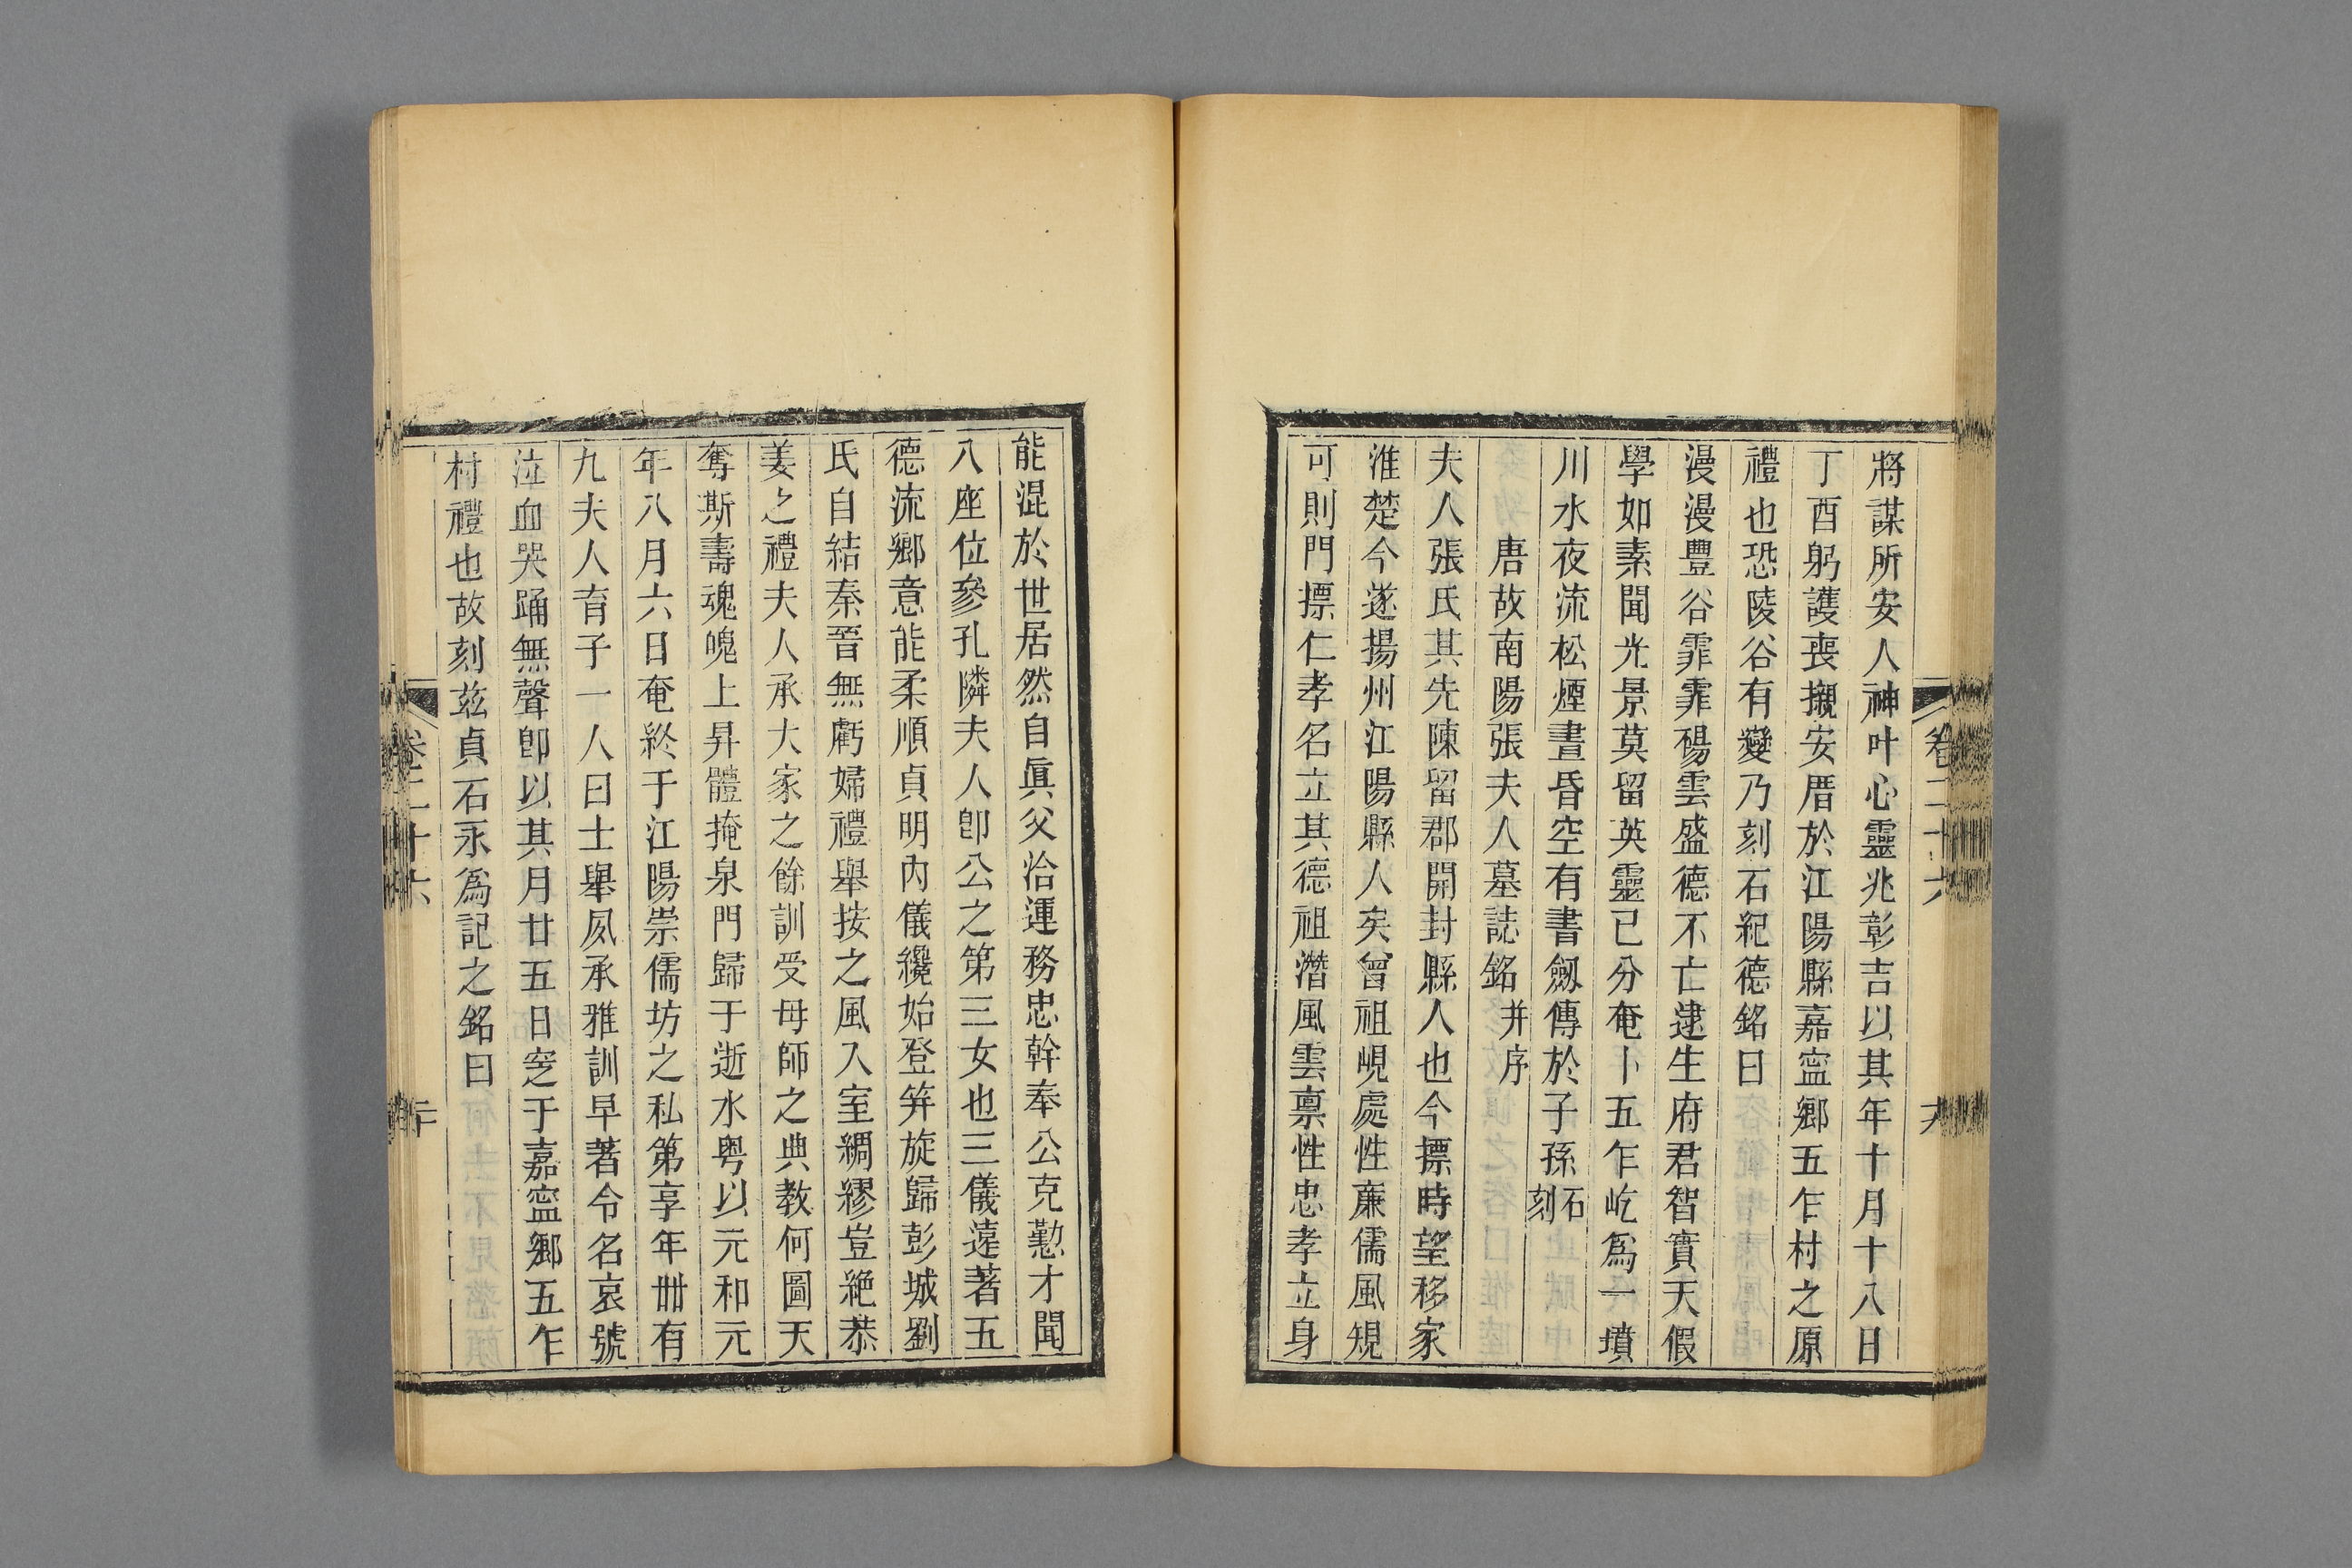 將謀所安人神叶心靈兆彰吉以其年十月十八日
丁酉躬護喪櫬安厝於江陽縣嘉寍鄉五乍村之原
禮也恐陵谷有變乃刻石紀德銘曰
漫漫豐谷霏霏碭雲盛德不亡逮生府君智實天假
學如素聞光景莫留英靈已分奄卜五乍屹爲一墳
川水夜流松煙晝昏空有書劔傳於子孫石刻
唐故南陽張夫人墓誌銘并序
夫人張氏其先陳留郡開封縣人也今摽時望移家
淮楚今遂揚州江陽縣人矣曾祖峴處性亷儒風規
可則門摽仁孝名立其德祖潛風雲禀性忠孝立身
卷二十六
能混於世居然自眞父洽運務忠幹奉公克懃才聞
八座位參孔隣夫人卽公之第三女也三儀遠著五
德流鄉意能柔順貞明內儀纔始登笄旋歸彭城劉
氏自結秦晉無虧婦禮舉按之風入室綢繆豈絶恭
姜之禮夫人承大家之餘訓受母師之典教何圖天
奪斯壽魂魄上昇體掩泉門歸于逝水粤以元和元
年八月六日奄終于江陽崇儒坊之私第享年卌有
九夫人育子一人曰士舉夙承雅訓早著令名哀號
泣血哭踊無聲卽以其月廿五日窆于嘉寍鄉五乍
村禮也故刻玆貞石永爲記之銘曰
卷二十六